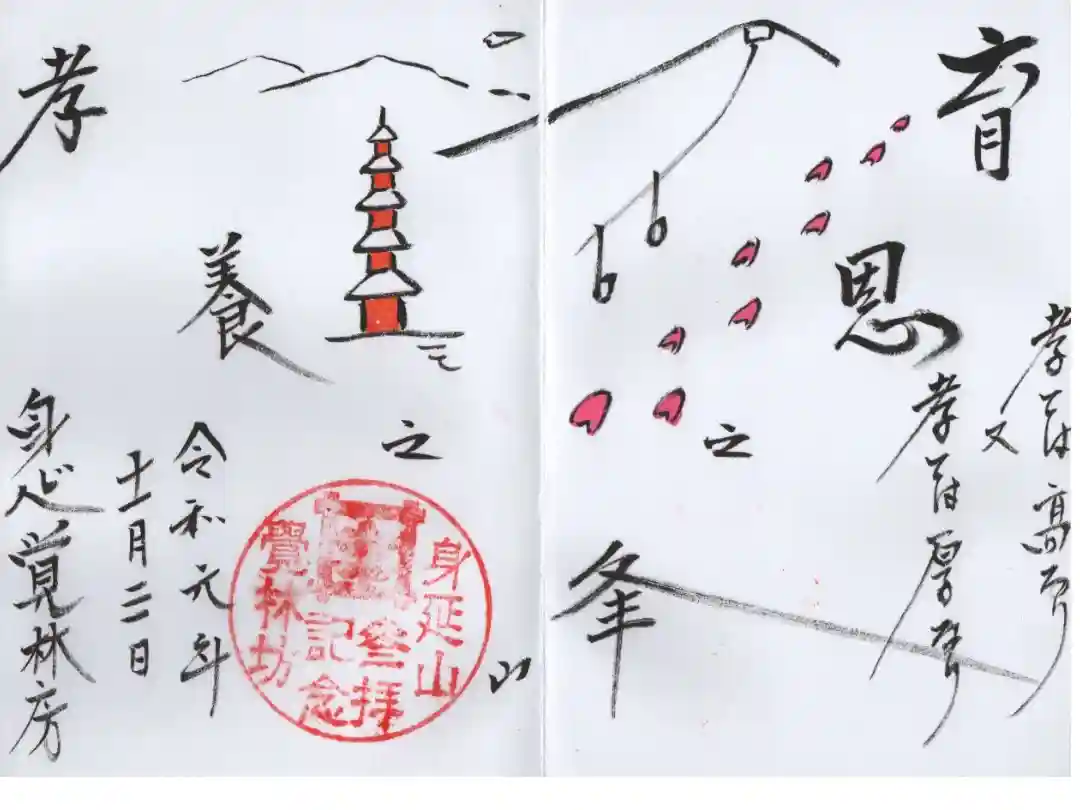 育恩之峰
孝は高なり
又
孝は厚なり
孝養之
令和元年
十一月二日
身延覚林房
身延山
参拝
記念
覺林坊